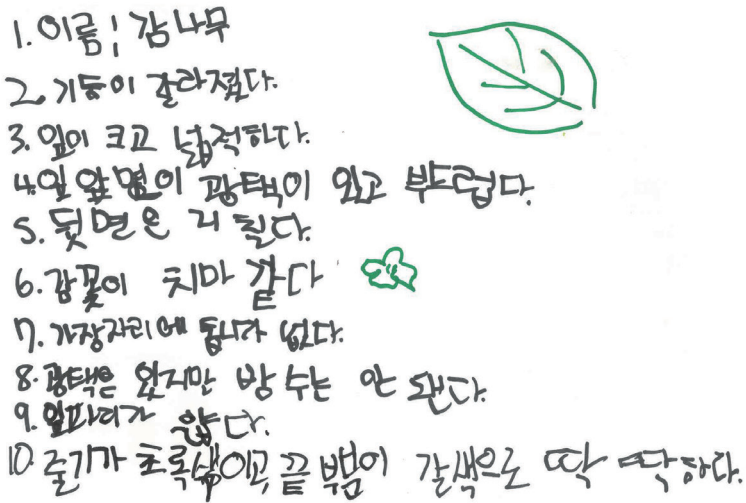 1. 이름 : 감나무
2. 기둥이 갈라졌다.
3. 잎이 크고 넓적하다.
4. 잎 앞면이 광택이 있고 부드럽다.
5. 뒷면은 거칠다.
6. 감꽃이 치마 같다
7. 가장자리에 톱니가 없다.
8. 광택은 있지만 방수는 안 됀다.
9. 잎파리가 얇다.
10. 줄기가 초록색이고, 끝 부분이 갈색으로 딱딱하다.